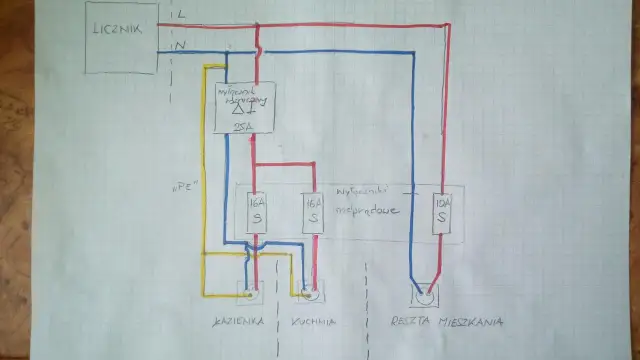 LICZNIK
L
N
wyłącznik
różnicowy
I∆
25A
"PE"
16A
S
16A
S
wyłączniki
nadprądowe
10A
S
ŁAZIENKA
KUCHNIA
RESZTA MIESZKANIA